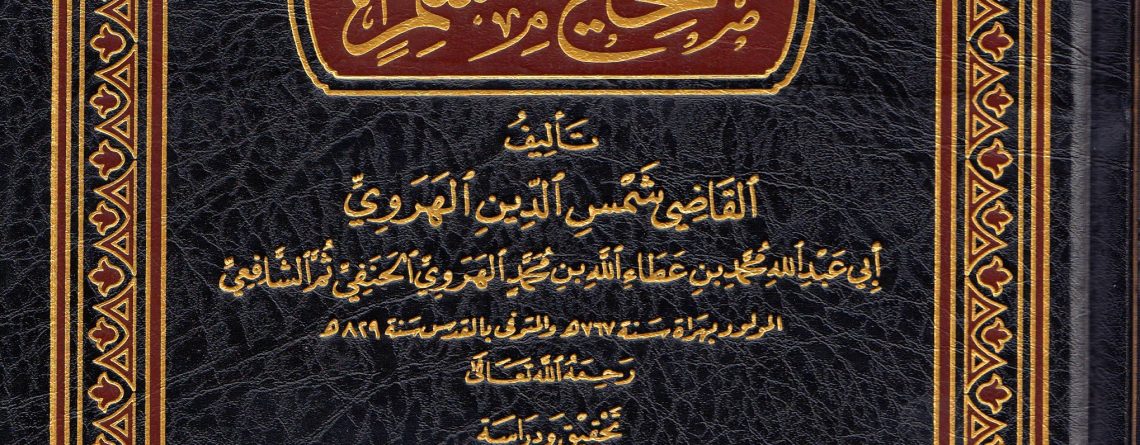 صحيح مسلم
تَأليفُ
القَاضِي شَمْسِ الدِّينِ الهَرَوِيِّ
أَبِي عَبْدِ اللهِ مُحَمَّدِ بنِ عَطَاءِ اللَّهِ بنِ مُحَمَّدٍ الهَرَوِيِّ الحَنَفِيِّ ثُمَّ الشَّافِعِيِّ
المولود بهراة سَنة ٧٦٧هـ والمتوفى بالقدس سَنة ٨٢٩هـ
رَحِمَهُ اللَّهُ تَعَالَى
تَحْقِيق وَدِرَاسَة